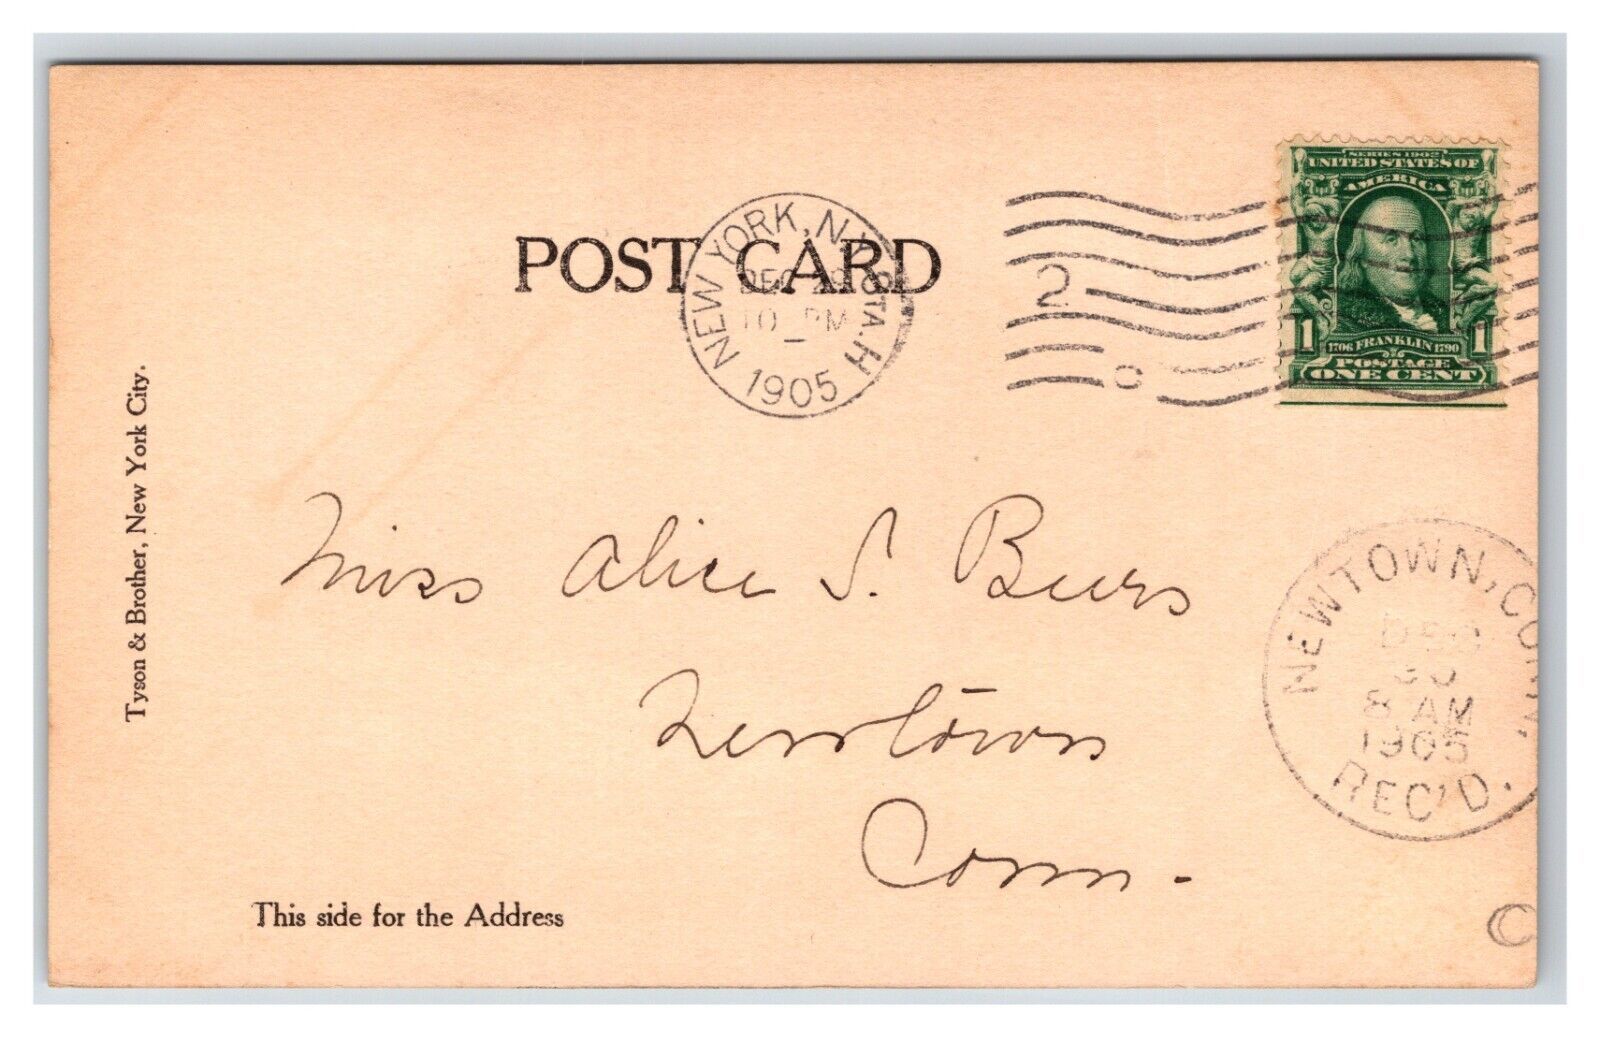 POST CARD
NEW YORK, N.Y. STA. H
DEC 29
10 PM
1905
2
C
SERIES 1902
UNITED STATES OF
AMERICA
1 1706 FRANKLIN 1790 1
POSTAGE
ONE CENT
Tyson & Brother, New York City.
Miss Alice S. Beers
Newtown
Conn.
NEWTOWN, CONN.
DEC
30
8 AM
1905
REC'D.
This side for the Address
C